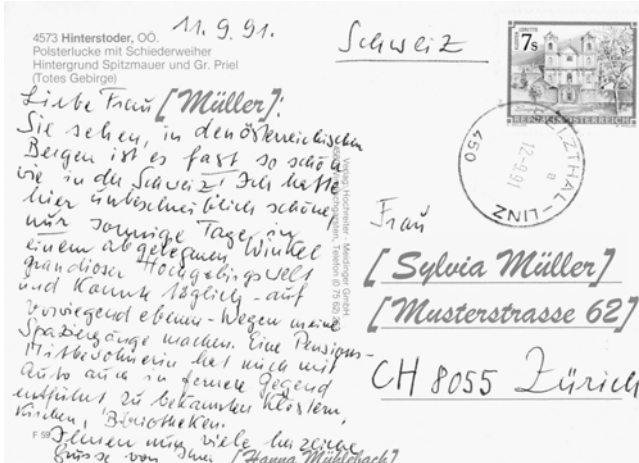 11.9.91.
4573 Hinterstoder, OÖ.
Polsterlucke mit Schiederweiher
Hintergrund Spitzmauer und Gr. Priel
(Totes Gebirge)
Liebe Frau [Müller]:
Sie sehen, in den österreichischen
Bergen ist es fast so schön
wie in der Schweiz! Ich hatte
hier unbeschreiblich schöne,
nur sonnige Tage in
einem abgelegenen Winkel
grandioser Hochgebirgswelt
und konnte täglich - auf
vorwiegend ebenen - Wegen meine
Spaziergänge machen. Eine Pensions-
Mitbewohnerin hat mich mit
Auto auch in fernere Gegend
entführt zu bekannten Klöstern,
Kirchen, Bibliotheken.
Ihnen nun viele herzliche
Grüsse von Ihrer [Hanna Mühlebach]
F 59
Verlag: Hochreiter - Meidinger GmbH
Telefon (0 75 62)
Schweiz
KLOSTER LORETTO
7s
REPUBLIK ÖSTERREICH
ZTHAL-LINZ
12-9.91
a
450
Frau
[Sylvia Müller]
[Musterstrasse 62]
CH 8055 Zürich